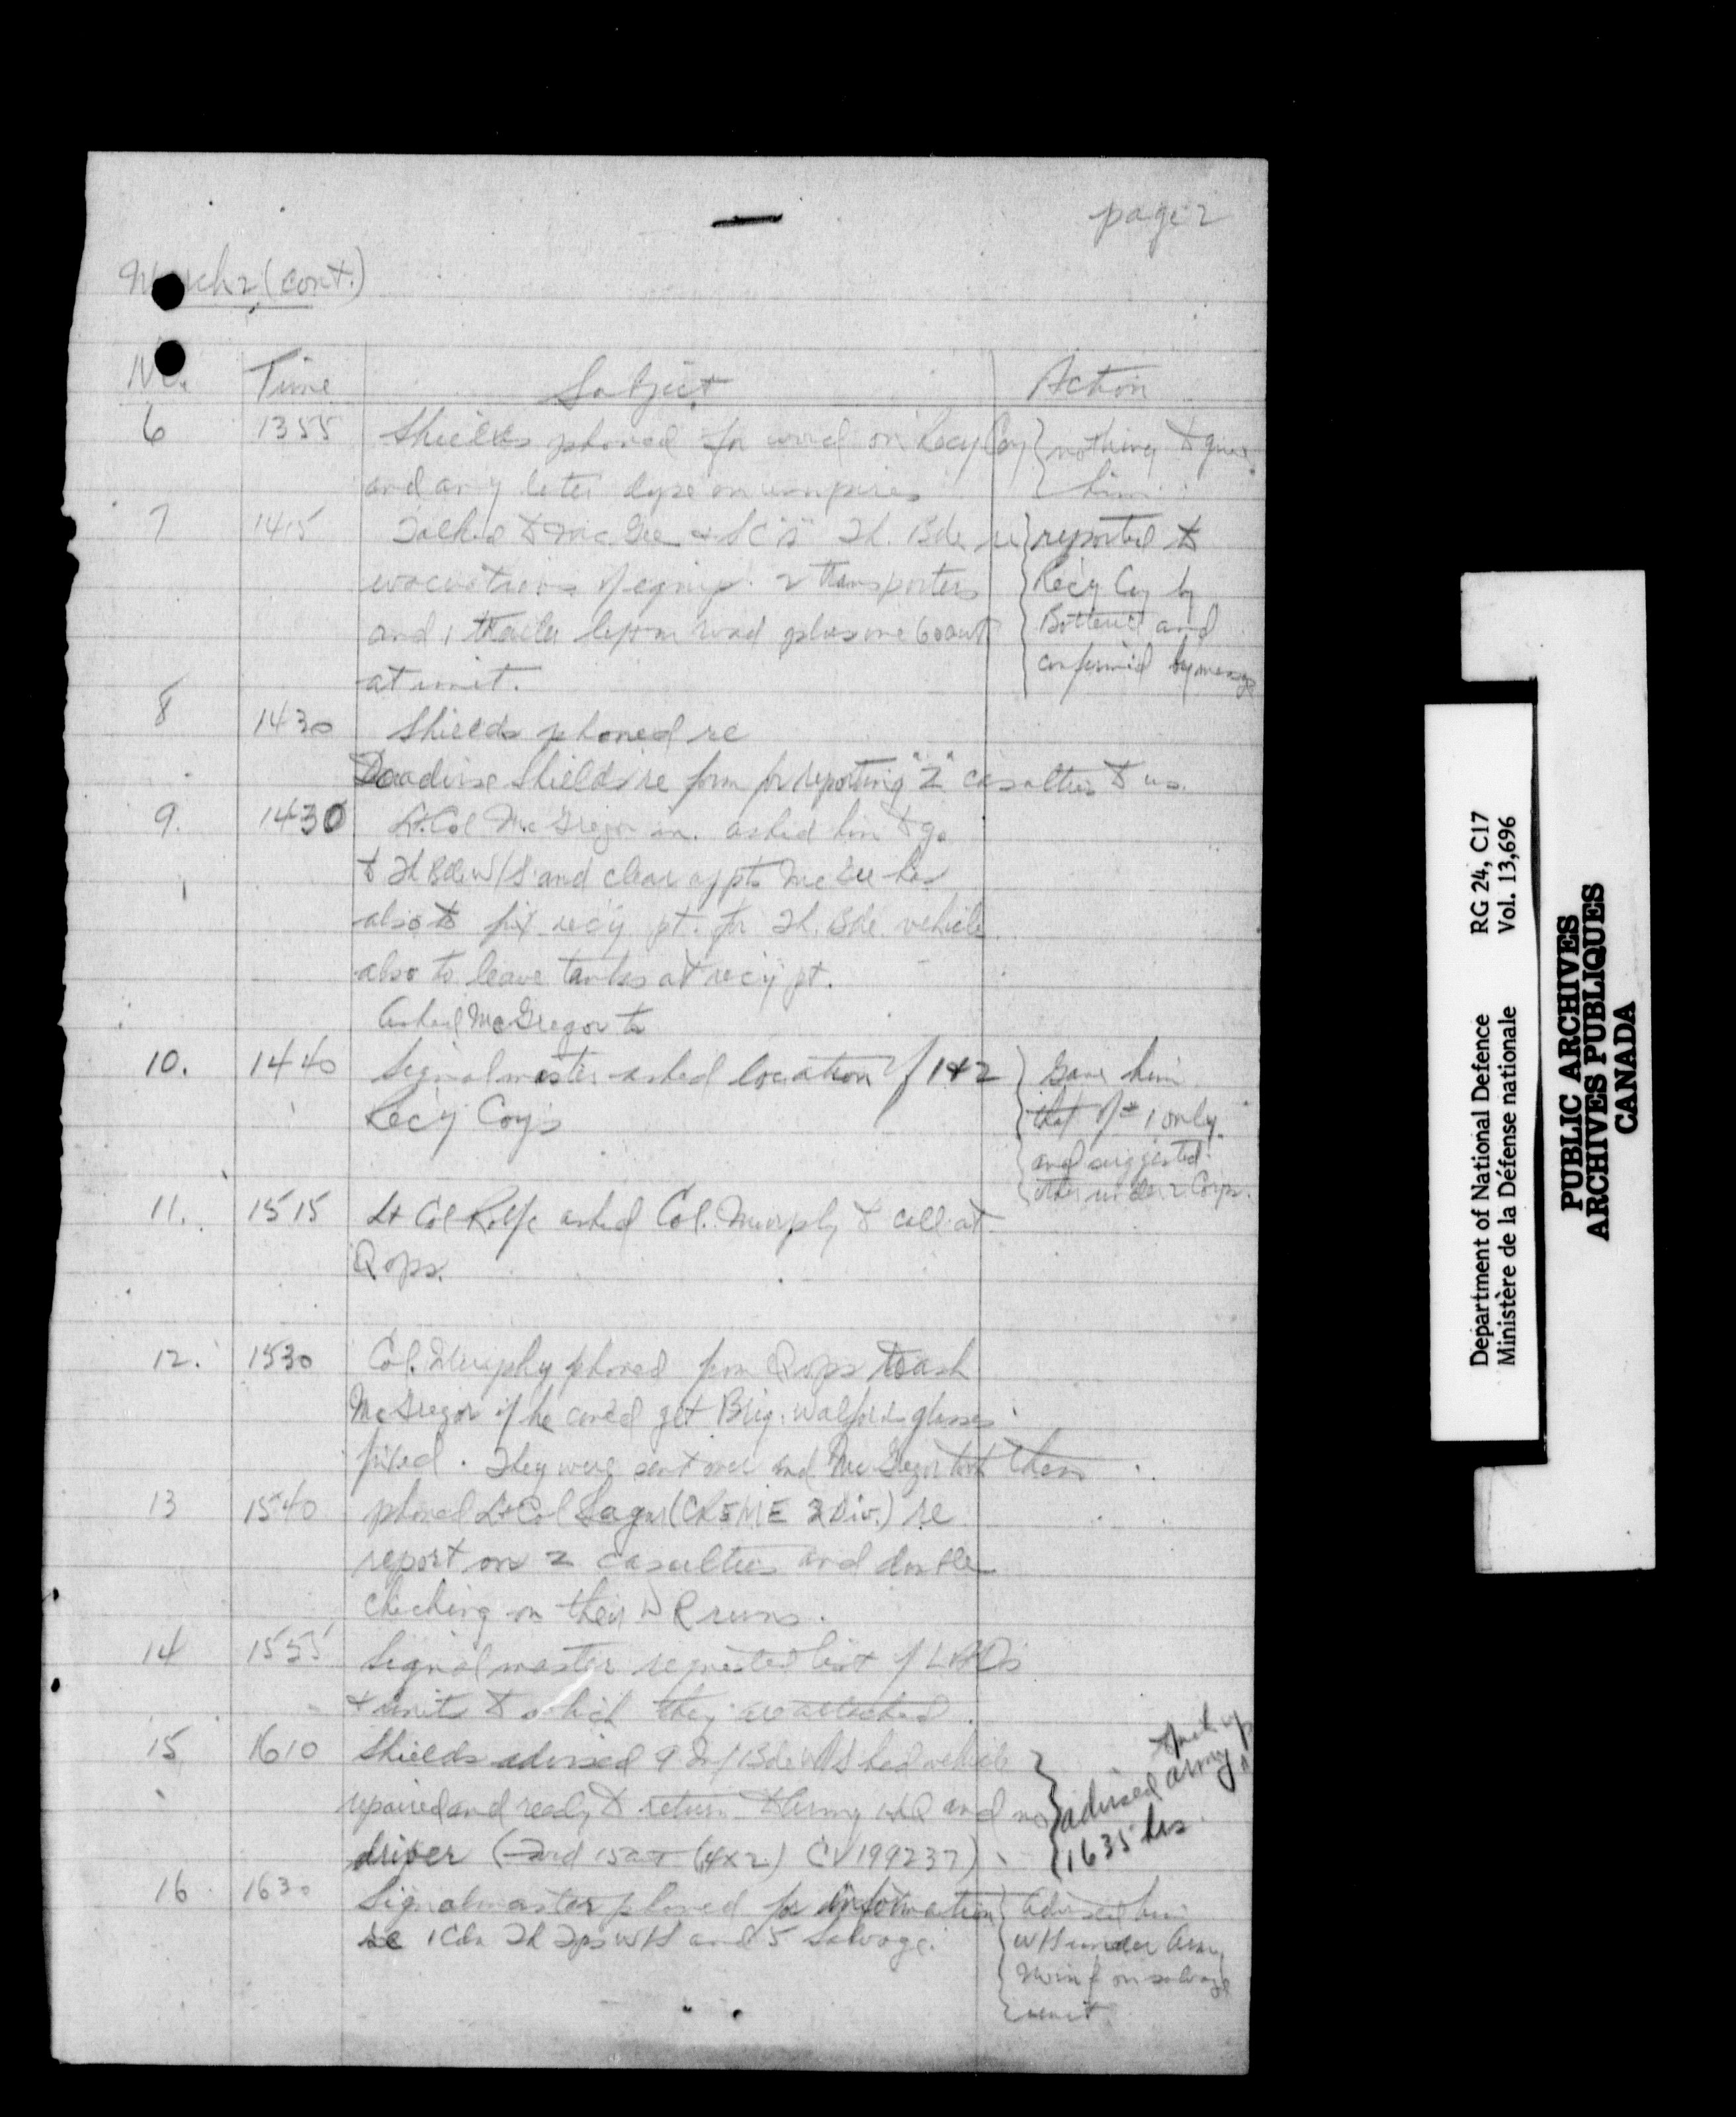 page 2
March 2 (cont.)
No. Time Subject Action
6 1355 Shields phoned for word on Recy Coy nothing to give
and any later on umpires him
7 1415 Talked to McGee Tk. Bde re reported to
evacuations of equip. 2 transporters Recy Coy by
and 1 trailer left on road plus one 60 cwt and
at unit. confirmed by
8 1430 Shields phoned re
advise Shields re form for reporting "Z" casualties to us.
9. 1430 Lt. Col McGregor in. asked him to go
to Tk Bde W/S and clear up pts McGee has
also to fix recy pt. for Tk. Bde. vehicle
also to leave tanks at recy pt.
Asked McGregor to
10. 1440 Signalmaster asked location of 1 & 2 Gave him
Recy Coys that of # 1 only
and suggested
other under 2 Corps.
11. 1515 Lt Col Rolfe asked Col. Murphy to call at
Q ops.
12. 1530 Col. Murphy phoned from Q ops to ask
McGregor if he could get Brig. Walford's glasses
fixed. They were sent over and McGregor took them
13 1540 phoned Lt Col (CREME 3 Div.) re
report on Z casualties and double
checking on their W R runs.
14 1555 Signalmaster requested list of LADs
& units to which they are attached.
15 1610 Shields advised 9 Inf Bde W/S had vehicle
repaired and ready to return to Army HQ and no advised army
driver (Ford 15 cwt (4x2) CV 199237) 1635 hrs.
16 1630 Signalmaster phoned for information Advised him
re 1 Cdn Tk Tps W/S and 5 Salvage. W/S under Army
no inf on salvage
unit.
Department of National Defence RG 24, C17
Ministère de la Défense nationale Vol. 13,696
PUBLIC ARCHIVES
ARCHIVES PUBLIQUES
CANADA